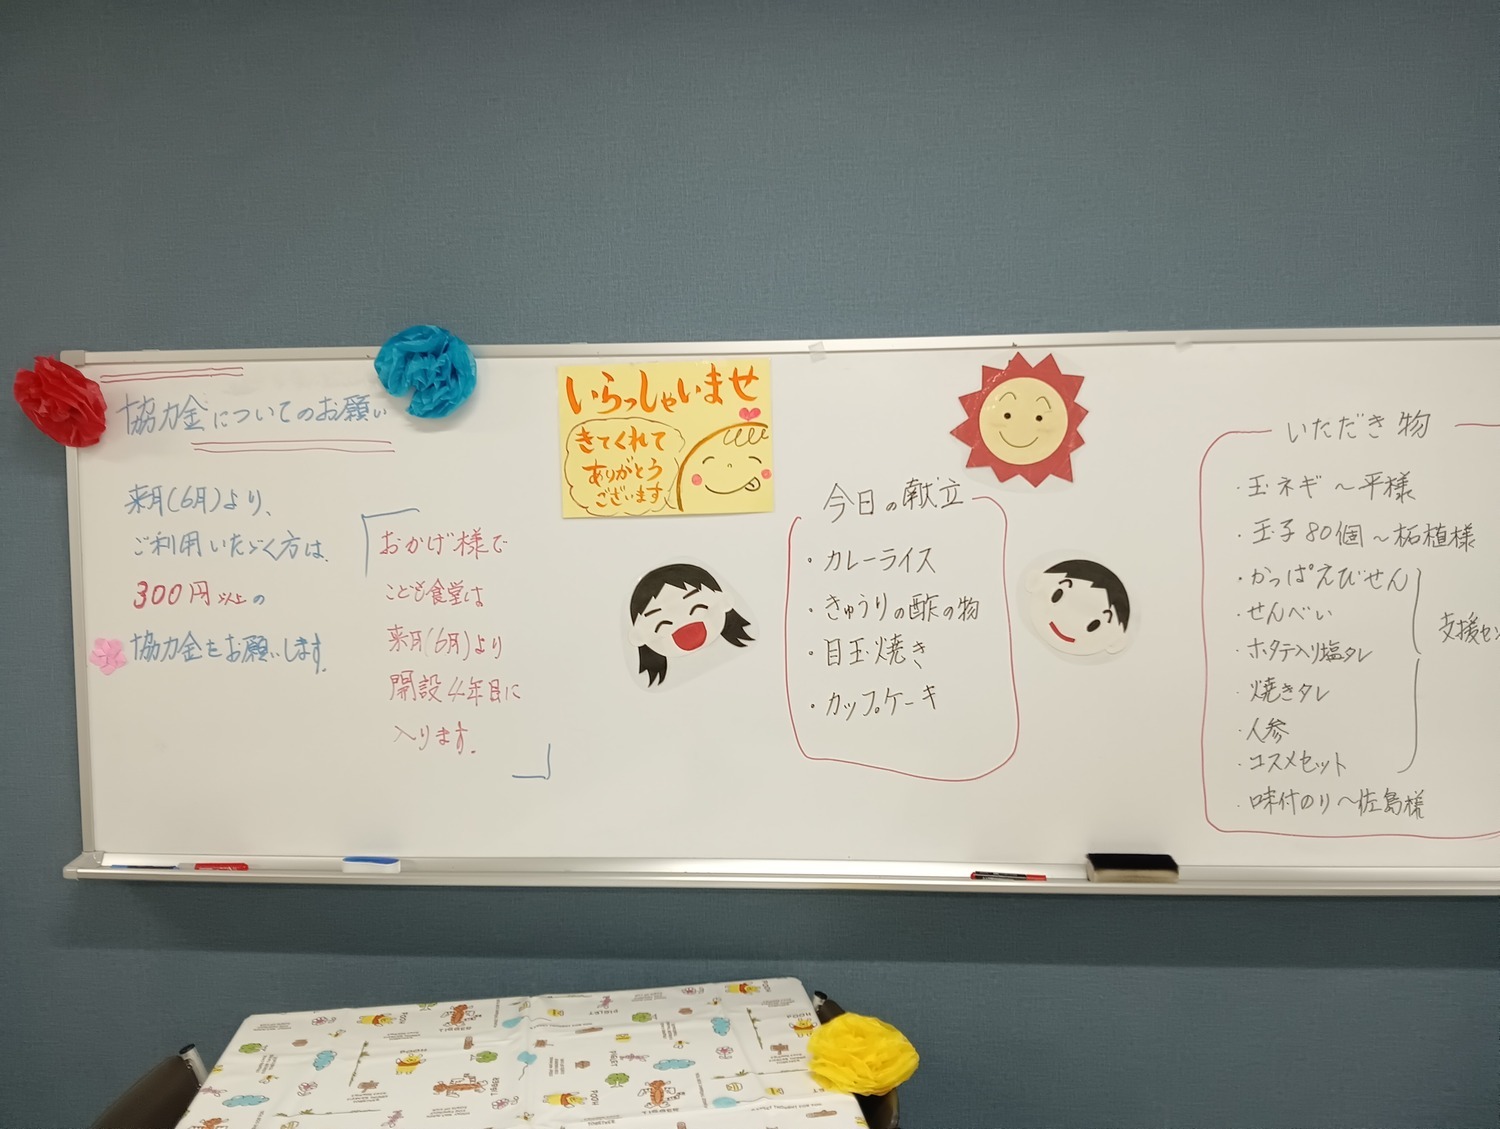 協力金についてのお願い
来月(6月)より、
ご利用いただく方は、
300円以上の
協力金をお願いします。
おかげ様で
こども食堂は
来月(6月)より
開設4年目に
入ります。
いらっしゃいませ
きてくれて
ありがとう
ございます
今日の献立
・カレーライス
・きゅうりの酢の物
・目玉焼き
・カップケーキ
いただき物
・玉ネギ～平様
・玉子80個～柘植様
・かっぱえびせん
・せんべい
・ホタテ入り塩タレ
・焼きタレ
・人参
・コスメセット
・味付のり～佐島様
支援セン
POOH
TIGGER
PIGLET